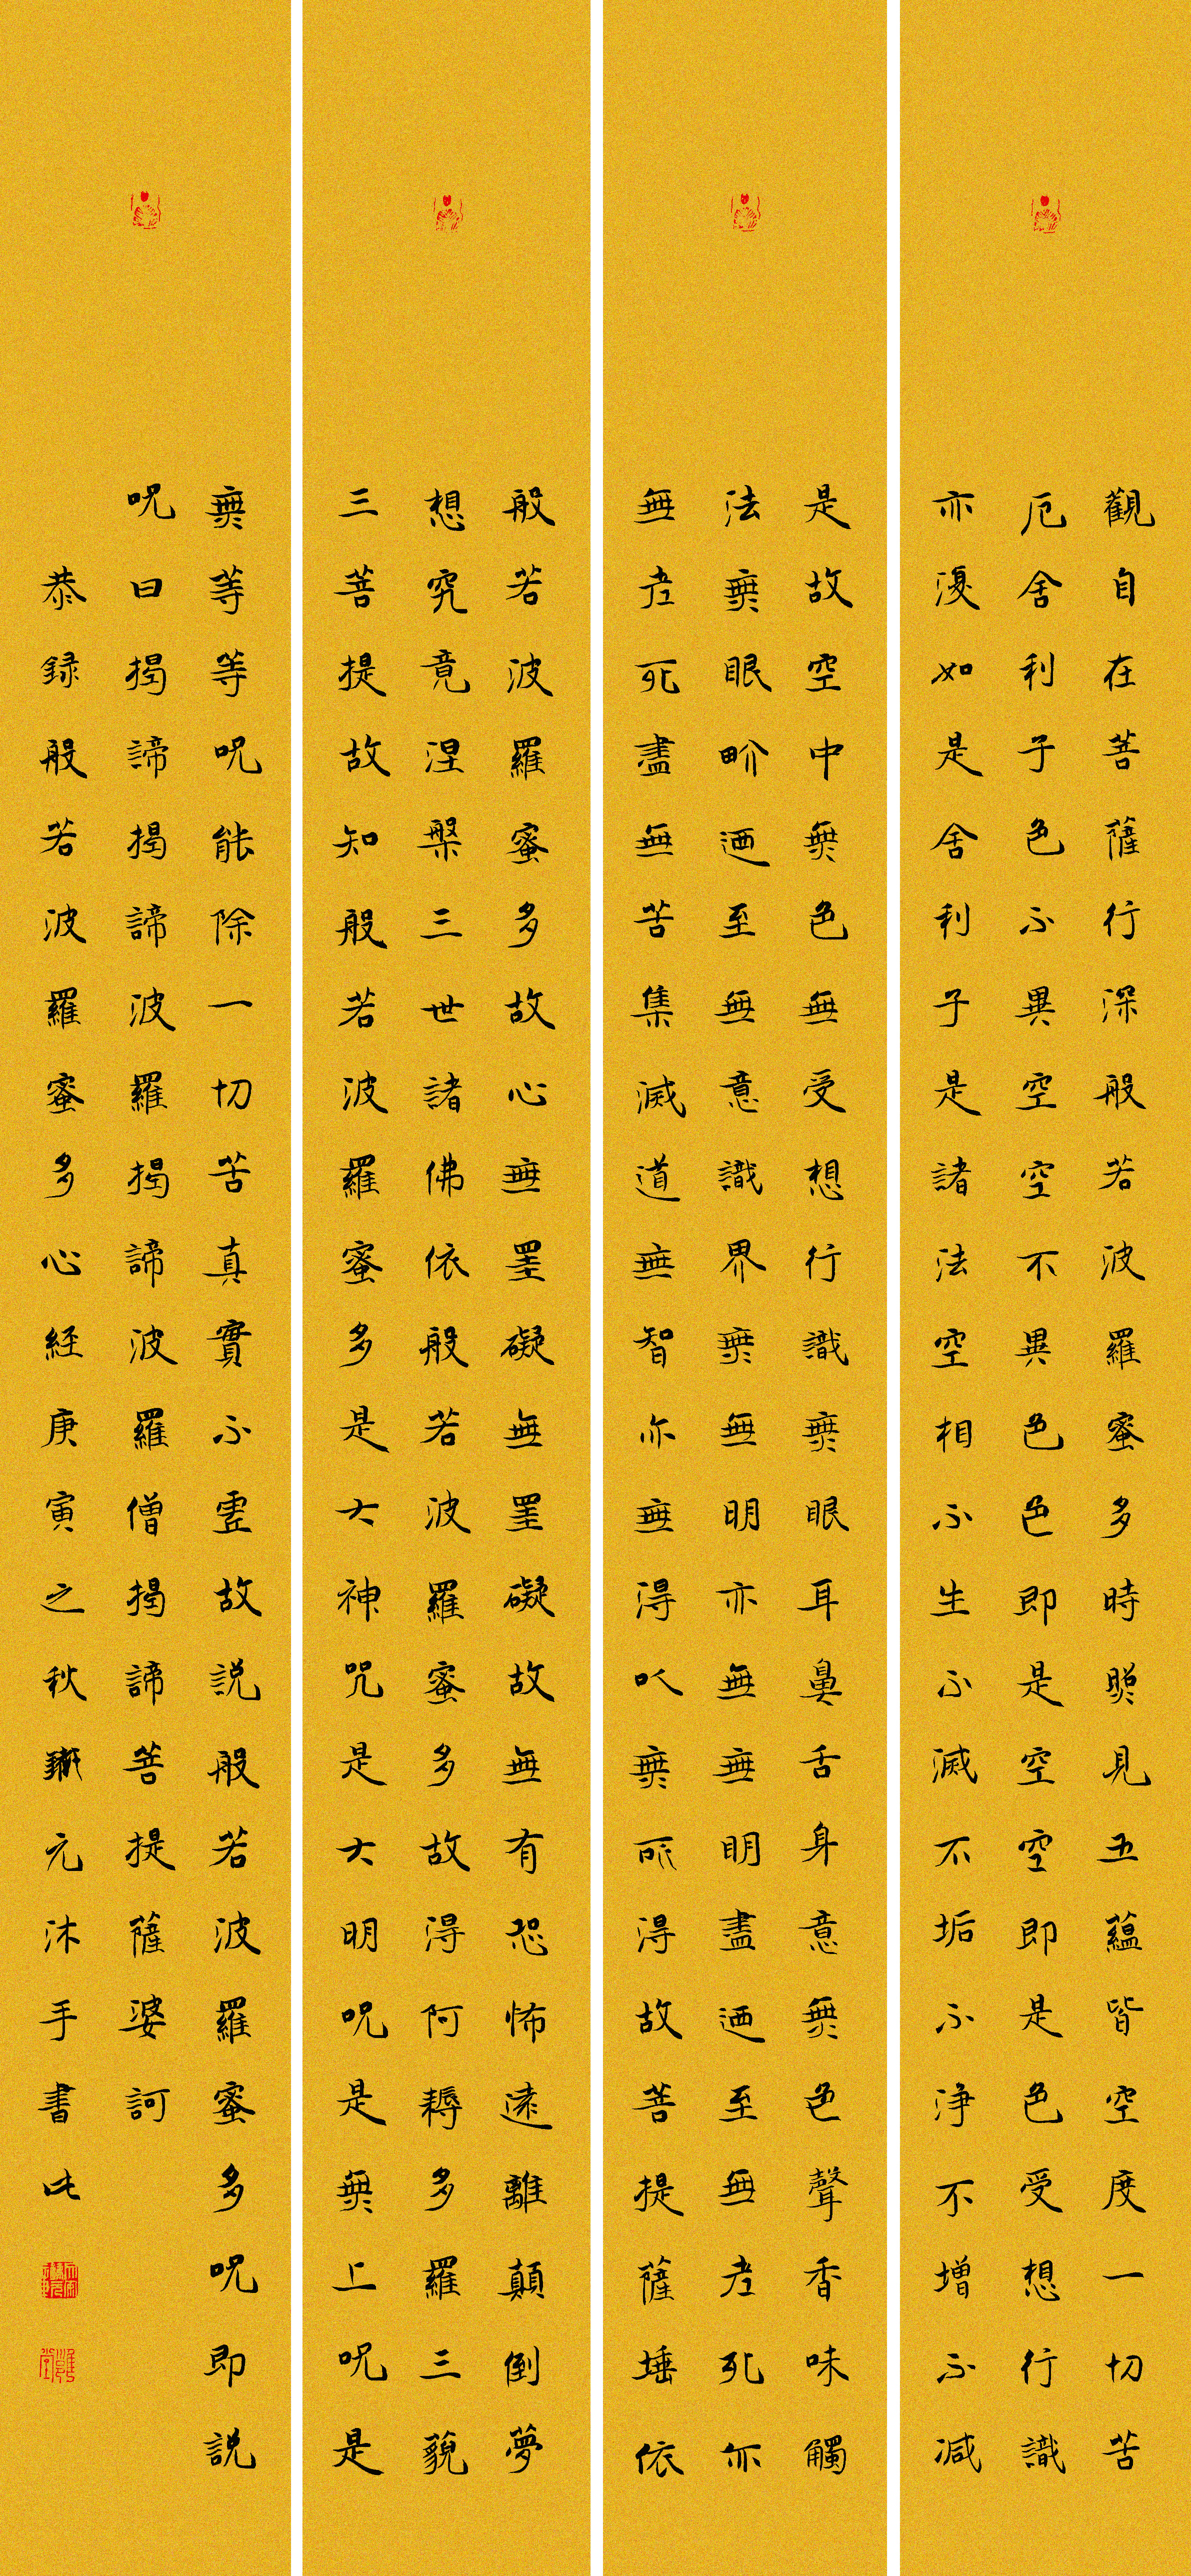 觀自在菩薩行深般若波羅蜜多時照見五蘊皆空度一切苦
厄舍利子色不異空空不異色色即是空空即是色受想行識
亦復如是舍利子是諸法空相不生不滅不垢不淨不增不減
是故空中無色無受想行識無眼耳鼻舌身意無色聲香味觸
法無眼界迺至無意識界無無明亦無無明盡迺至無老死亦
無老死盡無苦集滅道無智亦無得以無所得故菩提薩埵依
般若波羅蜜多故心無罣礙無罣礙故無有恐怖遠離顛倒夢
想究竟涅槃三世諸佛依般若波羅蜜多故得阿耨多羅三藐
三菩提故知般若波羅蜜多是大神咒是大明呪是無上呪是
無等等呪能除一切苦真實不虛故説般若波羅蜜多呪即説
呪曰揭諦揭諦波羅揭諦波羅僧揭諦菩提薩婆訶
恭録般若波羅蜜多心經庚寅之秋元沐手書此